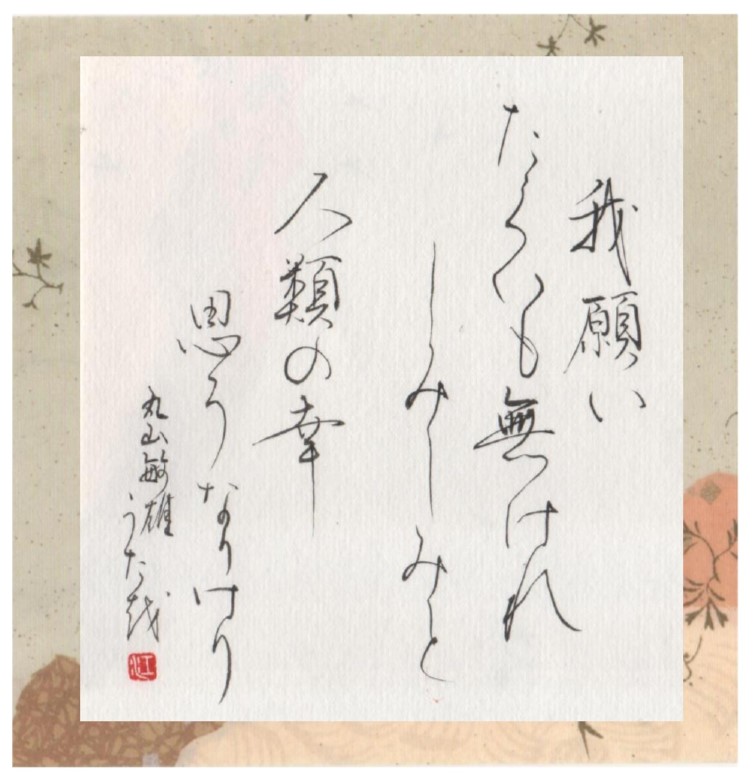 我願い
たくいも無けれ
しみしみと
人類の幸
思うなりけり
丸山敏雄うた越
江